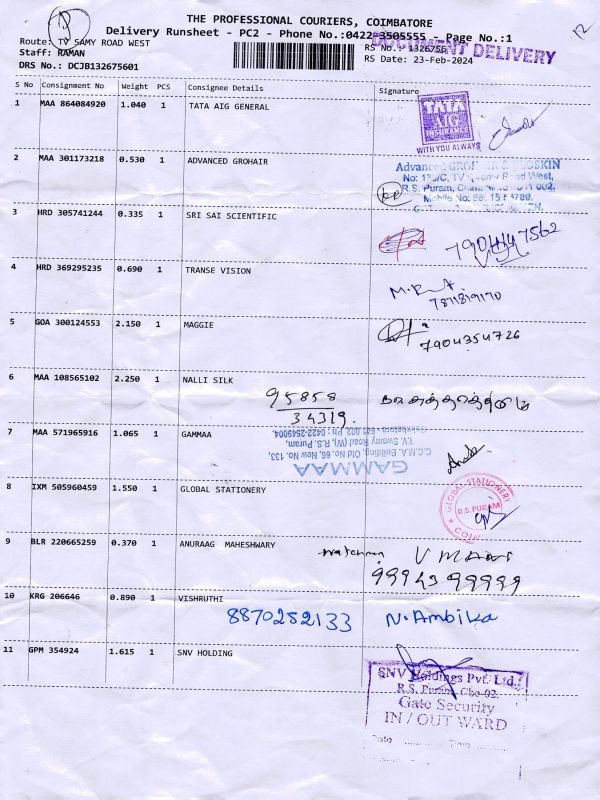 THE PROFESSIONAL COURIERS, COIMBATORE
Delivery Runsheet - PC2 - Phone No.:0422-3505555 - Page No.:1
Route: TV SAMY ROAD WEST
RS No.: 1326756
DOCUMENT DELIVERY
Staff: RAMAN
RS Date: 23-Feb-2024
DRS No.: DCJB132675601
S No Consignment No Weight PCS Consignee Details Signature
1 MAA 864084920 1.040 1 TATA AIG GENERAL
TATA
AIG
INSURANCE
WITH YOU ALWAYS
2 MAA 301173218 0.530 1 ADVANCED GROHAIR
Advanced
R.S. Puram,
Mobile No:
3 HRD 305741244 0.335 1 SRI SAI SCIENTIFIC
4 HRD 369295235 0.690 1 TRANSE VISION
7871819170
5 GOA 300124553 2.150 1 MAGGIE
7904354726
6 MAA 108565102 2.250 1 NALLI SILK
95858
34319
7 MAA 571965916 1.065 1 GAMMAA
GAMMAA
C.C.M.A. Building, Old No. 66, New No. 133,
T.V. Swamy Road (W), R.S. Puram,
Coimbatore - 641 002. Ph : 0422-2549004
8 IXM 505960459 1.550 1 GLOBAL STATIONERY
GLOBAL STATIONERY
R.S. PURAM
9 BLR 220665259 0.370 1 ANURAAG MAHESHWARY
watchman V MANI
9994399999
10 KRG 206646 0.890 1 VISHRUTHI
8870252133 N. Ambika
11 GPM 354924 1.615 1 SNV HOLDING
SNV Holdings Pvt. Ltd.,
R.S. Puram, Cbe-02.
Gate Security
IN / OUT WARD
Date Time